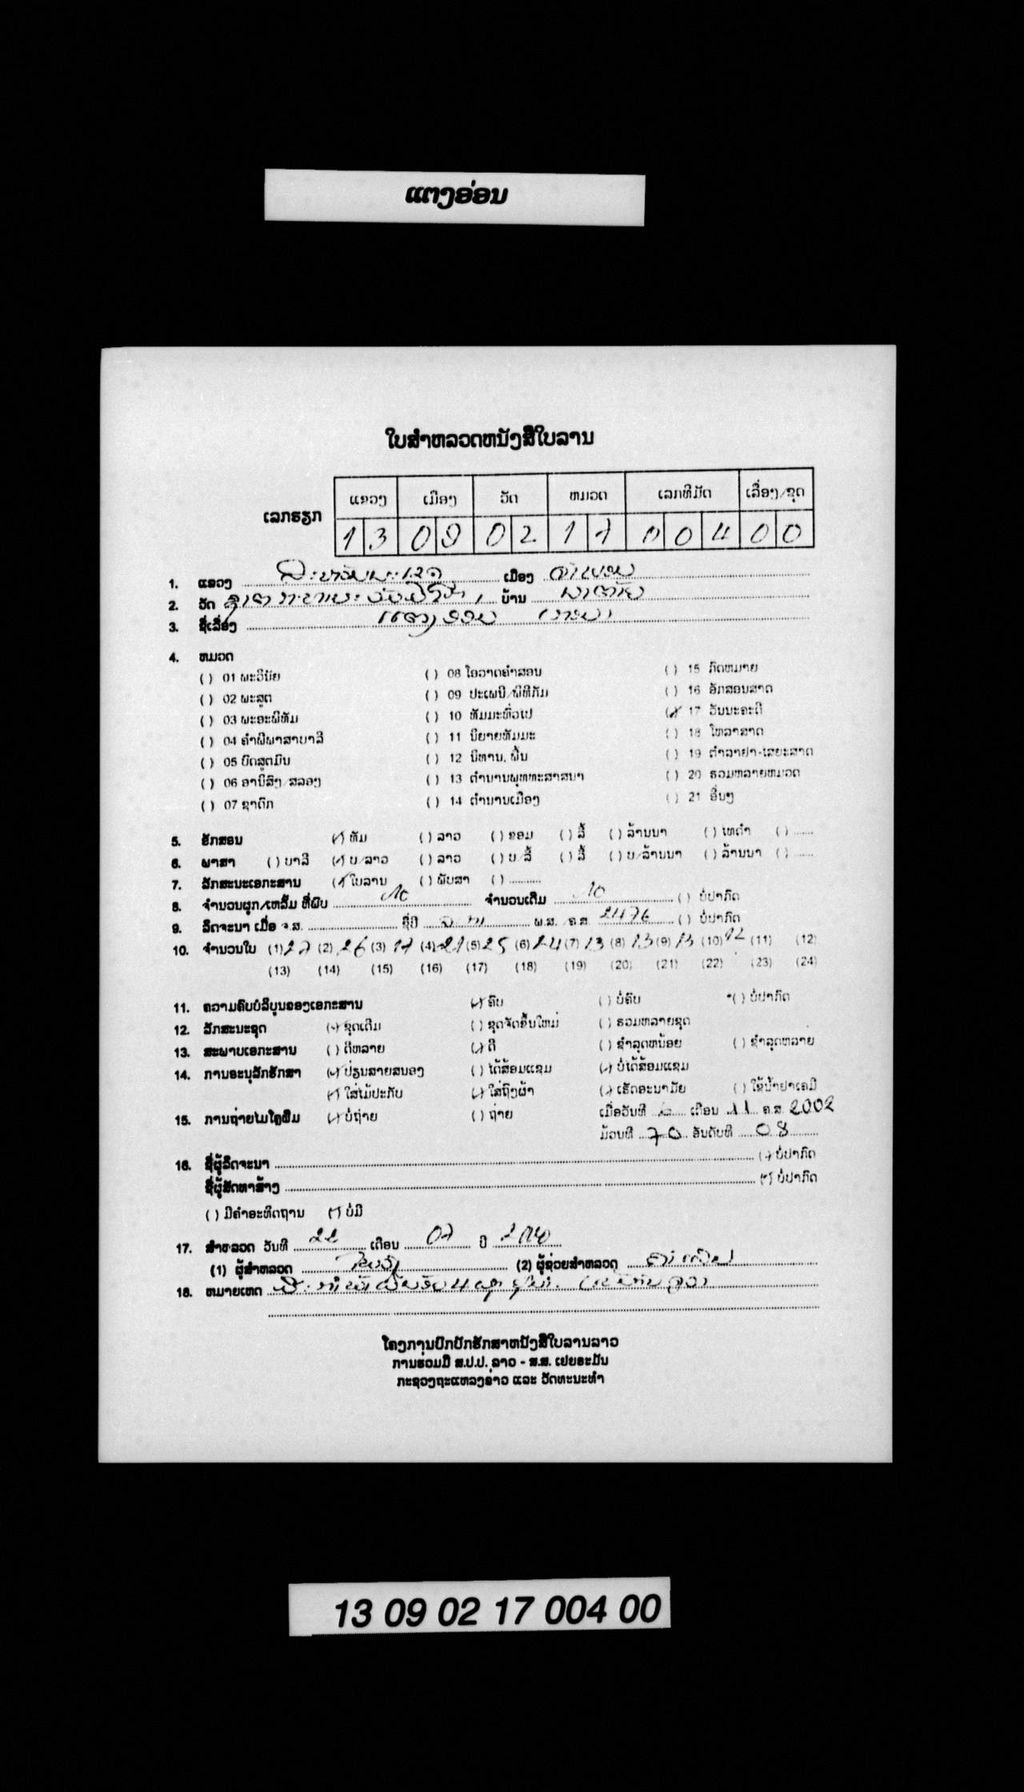 ແຕງອ່ອນ
ໃບສຳຫລວດຫນັງສືໃບລານ
ເລກຮຽກ
ແຂວງ ເມືອງ ວັດ ຫມວດ ເລກທີມັດ ເລື່ອງ/ຊຸດ
1 3 0 9 0 2 1 7 0 0 4 0 0
1. ແຂວງ ເມືອງ
2. ວັດ ບ້ານ
3. ຊື່ເລື່ອງ ແຕງອ່ອນ
4. ຫມວດ
( ) 01 ພະວິນັຍ ( ) 08 ໂອວາດຄຳສອນ ( ) 15 ກົດຫມາຍ
( ) 02 ພະສູດ ( ) 09 ປະເພນີ/ພິທີກັມ ( ) 16 ອັກສອນສາດ
( ) 03 ພະອະພິທັມ ( ) 10 ທັມມະທົ່ວໄປ (✓) 17 ວັນນະຄະດີ
( ) 04 ຄຳພີພາສາບາລີ ( ) 11 ນິຍາຍທັມມະ ( ) 18 ໂຫລາສາດ
( ) 05 ບົດສູດມົນ ( ) 12 ນິທານ, ພື້ນ ( ) 19 ຕຳລາຢາ-ໄສຍະສາດ
( ) 06 ອານິສົງ/ສລອງ ( ) 13 ຕຳນານພຸທທະສາສນາ ( ) 20 ຮວມຫລາຍຫມວດ
( ) 07 ຊາດົກ ( ) 14 ຕຳນານເມືອງ ( ) 21 ອື່ນໆ
5. ອັກສອນ (✓) ທັມ ( ) ລາວ ( ) ຂອມ ( ) ລື້ ( ) ລ້ານນາ ( ) ໄທດຳ ( ) ......
6. ພາສາ ( ) ບາລີ (✓) ບ/ລາວ ( ) ລາວ ( ) ບ/ລື້ ( ) ລື້ ( ) ບ/ລ້ານນາ ( ) ລ້ານນາ ( ) ......
7. ລັກສະນະເອກະສານ (✓) ໃບລານ ( ) ພັບສາ ( ) ..........
8. ຈຳນວນຜູກ/ເຫລັ້ມ ທີ່ພົບ 10 ຈຳນວນເດີມ 10 ( ) ບໍ່ປາກົດ
9. ລິດຈະນາ ເມື່ອ ຈ.ສ. ຊື່ປີ ພ.ສ. ຄ.ສ. 2476 ( ) ບໍ່ປາກົດ
10. ຈຳນວນໃບ (1) 27 (2) 26 (3) 17 (4) 21 (5) 25 (6) 24 (7) 13 (8) 13 (9) 13 (10) 12 (11) (12)
(13) (14) (15) (16) (17) (18) (19) (20) (21) (22) (23) (24)
11. ຄວາມຄົບບໍລິບູນຂອງເອກະສານ (✓) ຄົບ ( ) ບໍ່ຄົບ ( ) ບໍ່ປາກົດ
12. ລັກສະນະຊຸດ (✓) ຊຸດເດີມ ( ) ຊຸດຈັດຂຶ້ນໃຫມ່ ( ) ຮວມຫລາຍຊຸດ
13. ສະພາບເອກະສານ ( ) ດີຫລາຍ (✓) ດີ ( ) ຊຳລຸດຫນ້ອຍ ( ) ຊຳລຸດຫລາຍ
14. ການອະນຸລັກຮັກສາ (✓) ປ່ຽນສາຍສນອງ ( ) ໄດ້ສ້ອມແຊມ (✓) ບໍ່ໄດ້ສ້ອມແຊມ
(✓) ໃສ່ໄມ້ປະກັບ (✓) ໃສ່ຖົງຜ້າ (✓) ເຮັດອະນາມັຍ ( ) ໃຊ້ນ້ຳຢາເຄມີ
15. ການຖ່າຍໄມໂຄຼຟິມ (✓) ບໍ່ຖ່າຍ ( ) ຖ່າຍ ເມື່ອວັນທີ ເດືອນ 11 ຄ.ສ. 2002
ມ້ວນທີ 70 ອັນດັບທີ 08
16. ຊື່ຜູ້ລິດຈະນາ (✓) ບໍ່ປາກົດ
ຊື່ຜູ້ສັດທາສ້າງ (✓) ບໍ່ປາກົດ
( ) ມີຄຳອະທິດຖານ (✓) ບໍ່ມີ
17. ສຳຫລວດ ວັນທີ 22 ເດືອນ 07 ປີ
(1) ຜູ້ສຳຫລວດ (2) ຜູ້ຊ່ວຍສຳຫລວດ
18. ຫມາຍເຫດ
ໂຄງການປົກປັກຮັກສາຫນັງສືໃບລານລາວ
ການຮ່ວມມື ສ.ປ.ປ. ລາວ - ສ.ສ. ເຢຍຣະມັນ
ກະຊວງຖະແຫລງຂ່າວ ແລະ ວັດທະນະທຳ
13 09 02 17 004 00